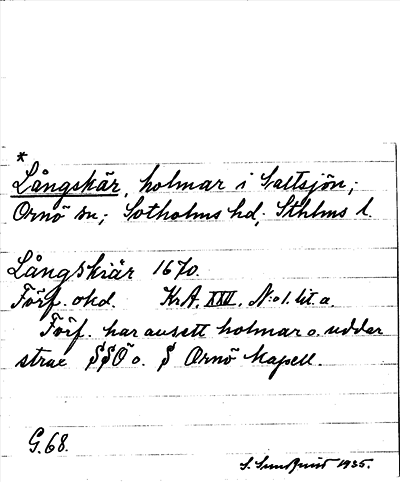 *
Långskär, holmar i Saltsjön;
Ornö sn; Sotholms hd; Sthlms l.
Långskiär 1670.
Förf. okd. Kr.A. XXV. N:o 1. lit. a.
Förf. har avsett holmar o. uddar
strax SSÖ o. S Ornö kapell.
G. 68.
S. Sundquist 1935.